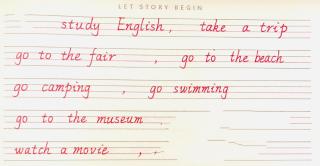 LET STORY BEGIN
study English, take a trip
go to the fair , go to the beach
go camping , go swimming
go to the museum .
watch a movie , .